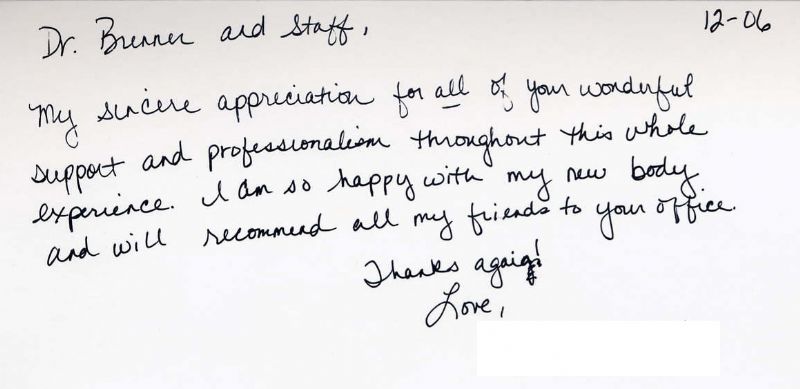 12-06
Dr. Brenner and Staff,
My sincere appreciation for all of your wonderful
support and professionalism throughout this whole
experience. I am so happy with my new body
and will recommend all my friends to your office.
Thanks again!
Love,